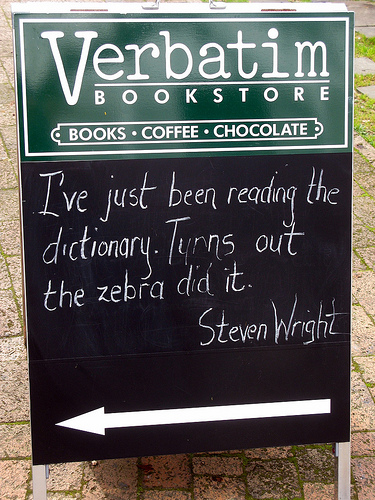 Verbatim
BOOKSTORE
BOOKS • COFFEE • CHOCOLATE
I've just been reading the
dictionary. Turns out
the zebra did it.
Steven Wright